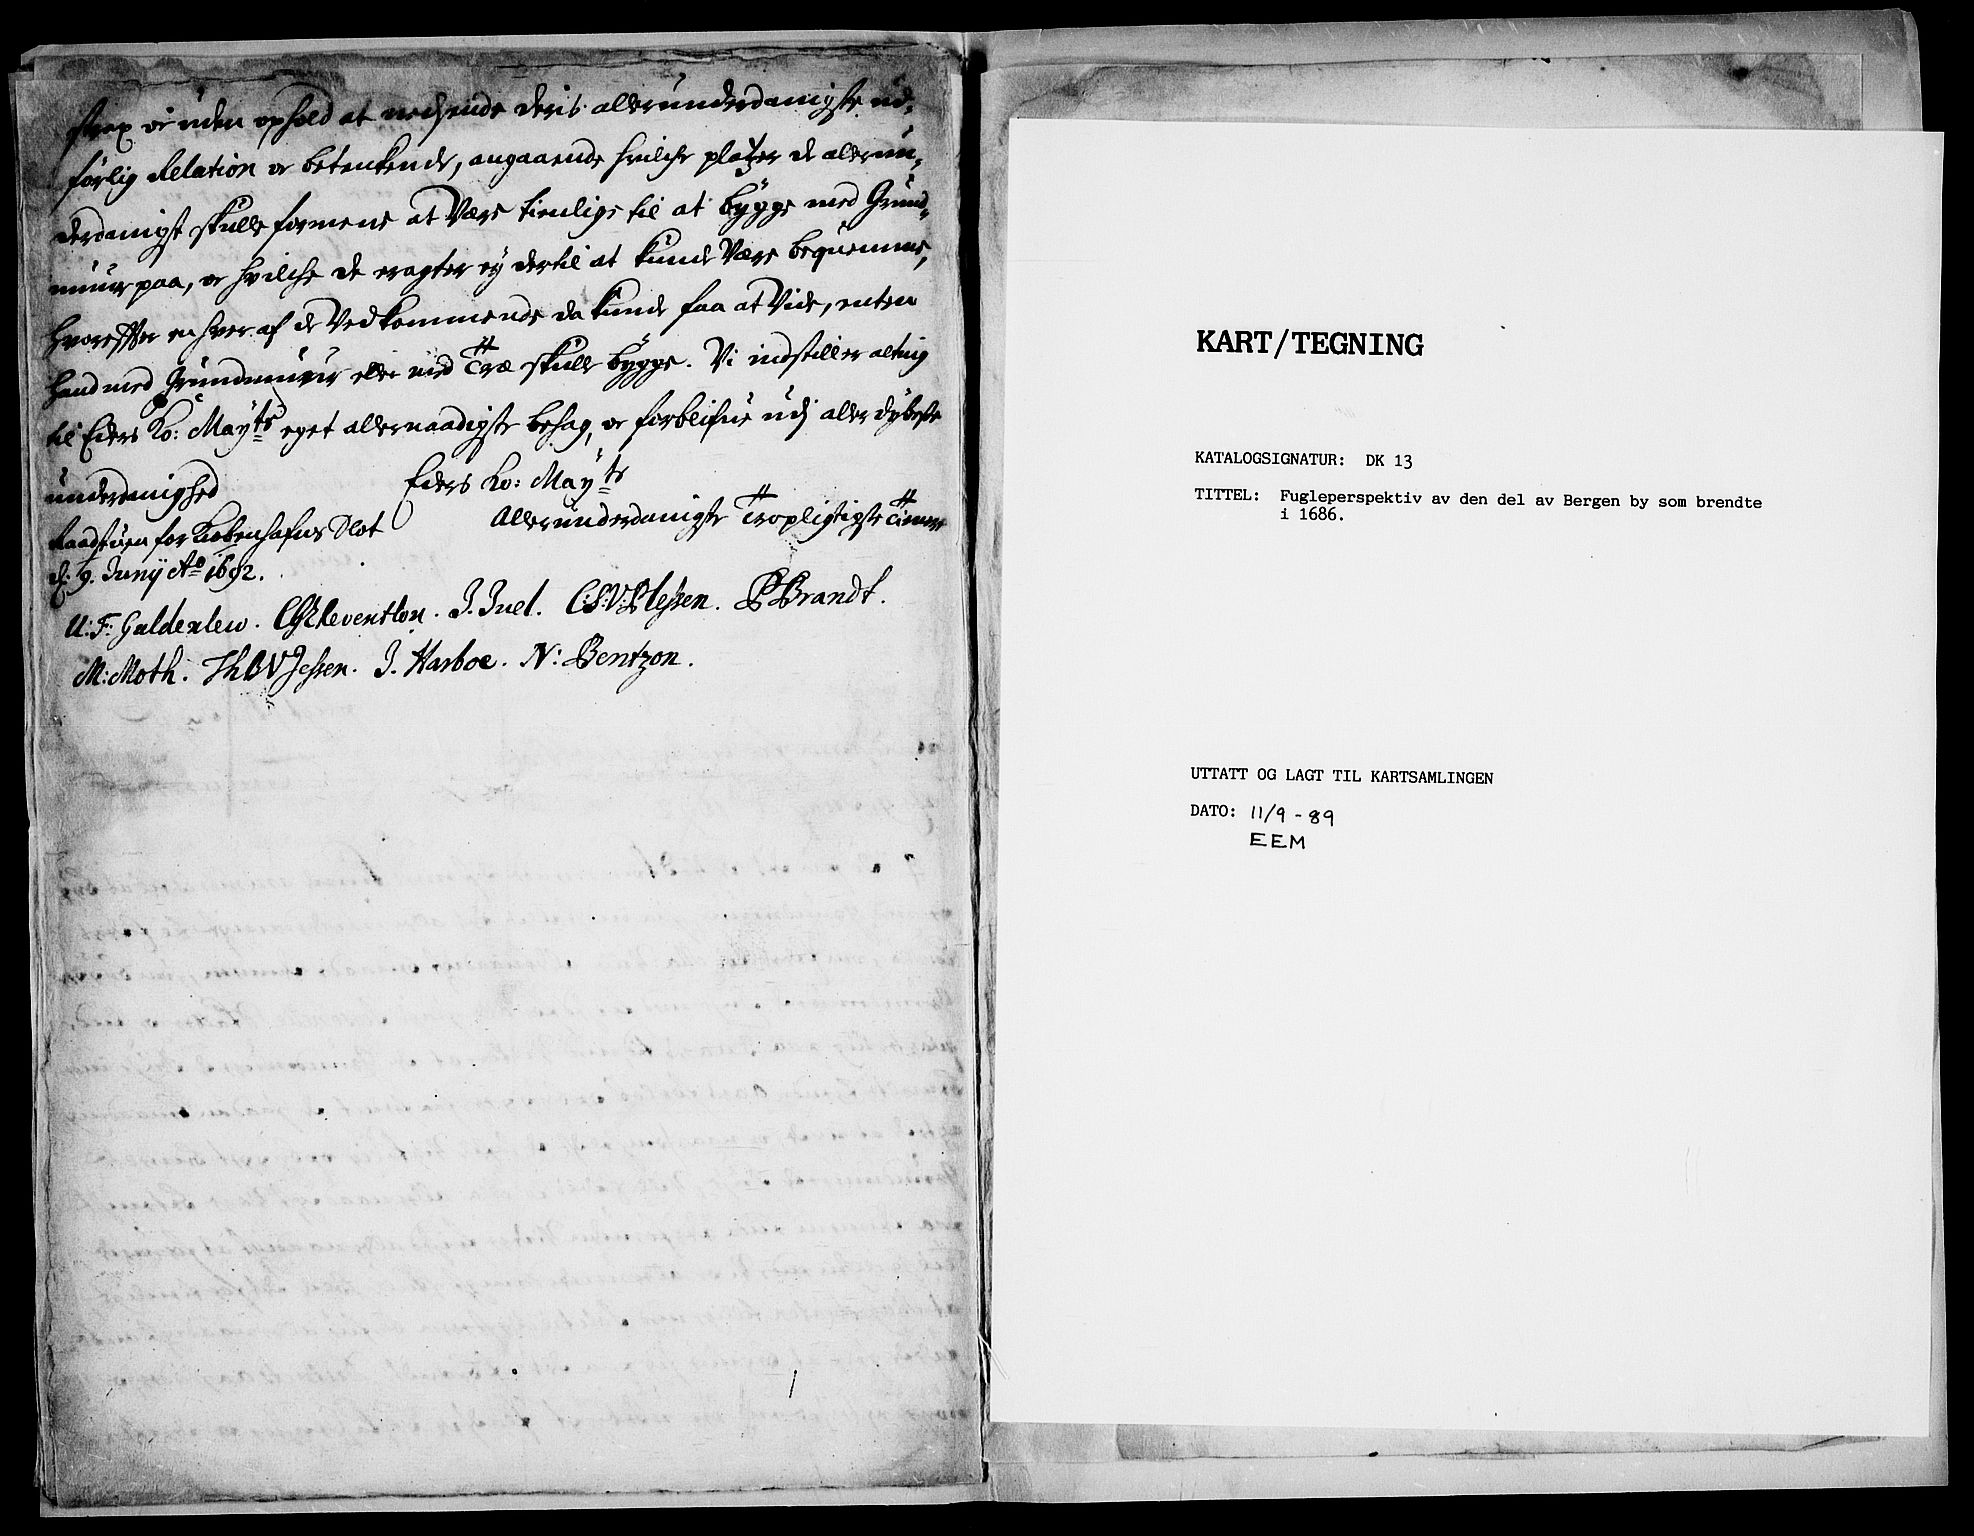 strax oc uden ophold at nedsende deris allerunderdanigste ud-
førlig Relation oc betenkende, angaaende hvilche platzer de allerun-
derdanigst skulle formene at Være tienlige til at bygge med Grund-
muur paa, oc hvilche de eragter ey dertil at kunde Være beqvemme,
hvorefter en hver af de Vedkommende da kunde faa at Vide, enten
hand med Grundmuur eller med Træ skulle bygge. Vi indstiller alting
til Eders Ko: Mayts eget allernaadigste behag, oc forblifue udj aller dybeste
underdanighed
Eders Ko: Mayts
Allerunderdanigste Troepligtigste Tienere
Raadstuen for Kiøbenhafns Slot
d: 9. Junij Ao 1692.
U: F: Guldenlew. C Reventlou. J. Juel. C: S: V: Plessen. P Brandt.
M: Moth. Th B V Jessen. J. Harboe. N: Bentzon.
KART/TEGNING
KATALOGSIGNATUR: DK 13
TITTEL: Fugleperspektiv av den del av Bergen by som brendte
i 1686.
UTTATT OG LAGT TIL KARTSAMLINGEN
DATO: 11/9-89
EEM